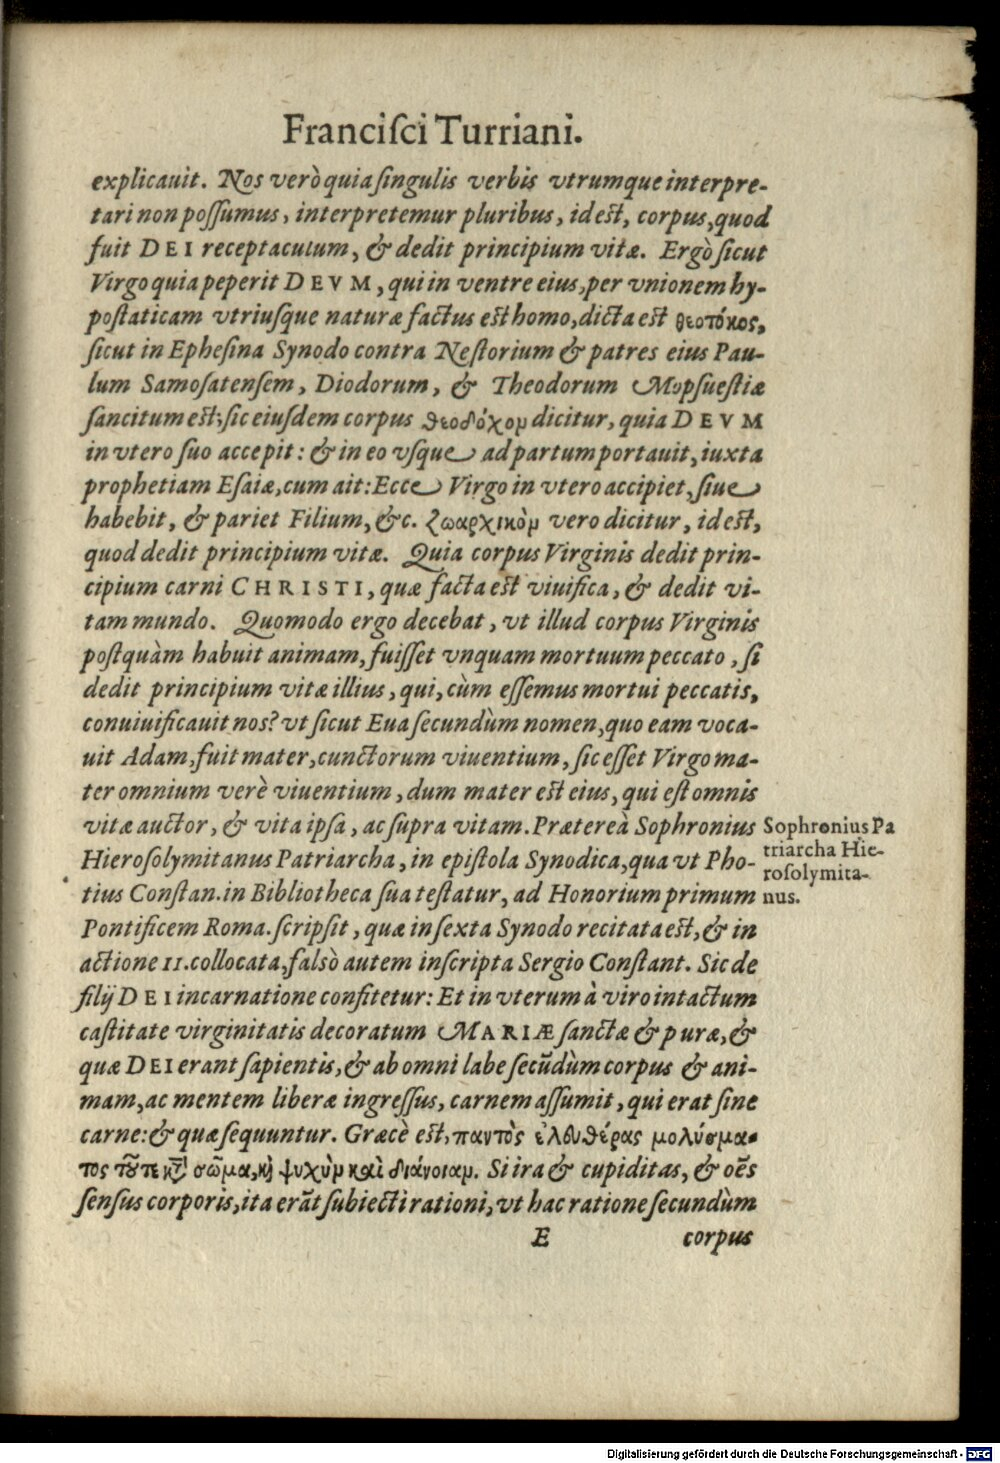 Franciſci Turriani.
explicauit. Nos verò quia ſingulis verbis vtrumque interpre-
tari non poſſumus, interpretemur pluribus, id est, corpus, quod
fuit DEI receptaculum, & dedit principium vitæ. Ergò ſicut
Virgo quia peperit DEVM, qui in ventre eius, per vnionem hy-
poſtaticam vtriuſque naturæ factus est homo, dicta est θεοτόκος,
ſicut in Epheſina Synodo contra Neſtorium & patres eius Pau-
lum Samoſatenſem, Diodorum, & Theodorum Mopſueſtiæ
ſancitum est; ſic eiuſdem corpus θεοδόχομ dicitur, quia DEVM
in vtero ſuo accepit: & in eo vſque ad partum portauit, iuxta
prophetiam Eſaiæ, cum ait: Ecce Virgo in vtero accipiet, ſiue
habebit, & pariet Filium, &c. ζωαρχικὸμ vero dicitur, id est,
quod dedit principium vitæ. Quia corpus Virginis dedit prin-
cipium carni CHRISTI, quæ facta est viuifica, & dedit vi-
tam mundo. Quomodo ergo decebat, vt illud corpus Virginis
poſtquàm habuit animam, fuiſſet vnquam mortuum peccato, ſi
dedit principium vitæ illius, qui, cùm eſſemus mortui peccatis,
conuiuificauit nos? vt ſicut Eua ſecundùm nomen, quo eam voca-
uit Adam, fuit mater, cunctorum viuentium, ſic eſſet Virgo ma-
ter omnium verè viuentium, dum mater est eius, qui eſt omnis
vitæ auctor, & vita ipſa, ac ſupra vitam. Prætereà Sophronius
Hieroſolymitanus Patriarcha, in epiſtola Synodica, qua vt Pho-
tius Conſtan. in Bibliotheca ſua teſtatur, ad Honorium primum
Pontificem Roma. ſcripſit, quæ in ſexta Synodo recitata est, & in
actione 11. collocata, falsò autem inſcripta Sergio Conſtant. Sic de
filij DEI incarnatione confitetur: Et in vterum à viro intactum
caſtitate virginitatis decoratum MARIÆ ſanctæ & puræ, &
quæ DEI erant ſapientis, & ab omni labe ſecũdùm corpus & ani-
mam, ac mentem liberæ ingreſſus, carnem aſſumit, qui erat ſine
carne: & quæ ſequuntur. Græcè est, παντὸς ἐλευθέρας μολύσμα-
τος τοῦτε κατὰ σῶμα, καὶ ψυχὴμ καὶ διάνοιαμ. Si ira & cupiditas, & oẽs
ſenſus corporis, ita erãt ſubiecti rationi, vt hac ratione ſecundùm
E corpus
Sophronius Pa
triarcha Hie-
roſolymita-
nus.
Digitalisierung gefördert durch die Deutsche Forschungsgemeinschaft - DFG